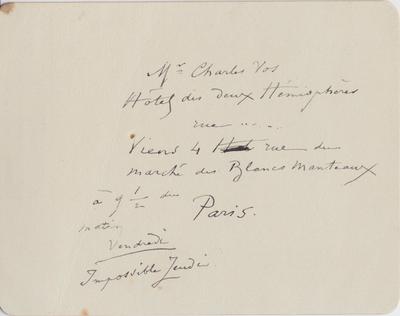 Mr Charles Vos
Hôtel des deux Hémisphères
rue ....
Viens 4 rue du
marché des Blancs Manteaux
à 9 1/2 du
matin
Paris.
Vendredi
Impossible Jeudi.